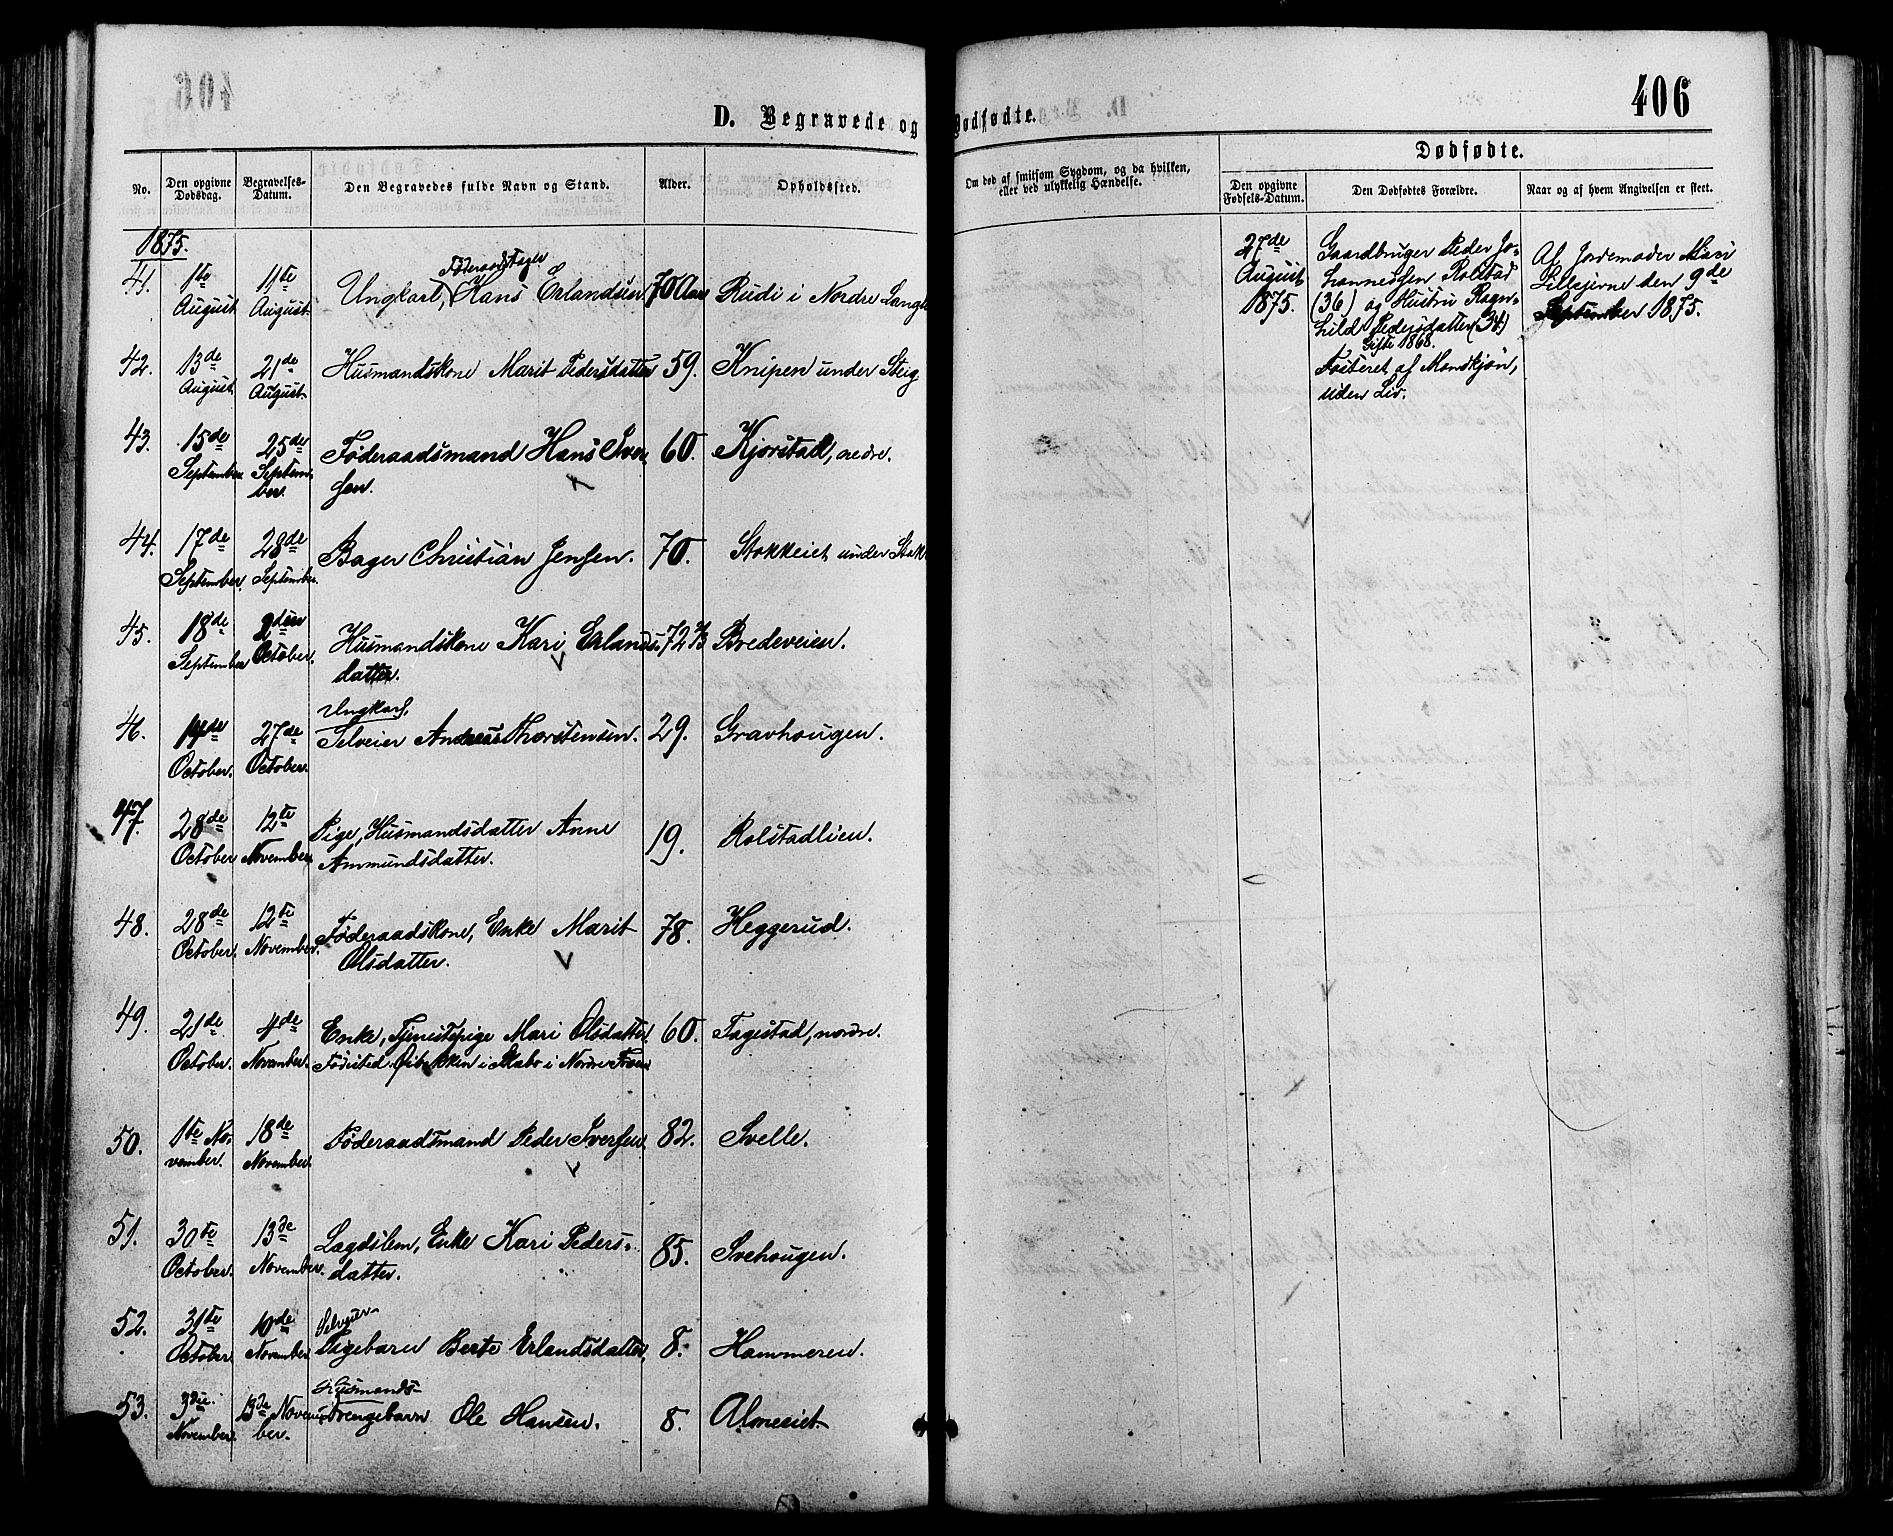 406
D. Begravede og Dødfødte.
No. Den opgivne Dødsdag. Begravelses-Datum. Den Begravedes fulde Navn og Stand. Alder. Opholdssted.
Om død af smitsom Sygdom, og da hvilken, eller ved ulykkelig Hændelse.
Dødfødte.
Den opgivne Fødsels-Datum. Den Dødfødtes Forældre. Naar og af hvem Angivelsen er skeet.
1875.
Føderaadstager
41. 1te August 11te August Ungkarl, Hans Erlandsen 70 Aar Rudi i Nordre
42. 13de August 21de August Husmandskone Marit Pedersdatter 59. Knipen under Steig
43. 15de September 25de Septem-
ber. Føderaadsmand Hans Iver-
sen. 60. Kjorstad, nedre.
44. 17de September 28de September. Bager Christian Jensen. 70. Stokkeiet under
45. 18de September 2den October. Husmandskone Kari Erlands-
datter. 72 Bredeveien.
Ungkarl,
46. October. 27de October. Selveier Andreas Thorstensen. 29. Gravhougen.
47. 28de October 12te November Pige, Husmandsdatter Anne
Ammundsdatter. 19. Rolstadlien.
48. 28de October. 12te November. Føderaadskone, Enke Marit
Olsdatter. 78. Heggerud.
49. 21de October. 4de November. Enke, Tjenestepige Mari Olsdatter.
Fødested Øibakken i Skabo i Nordre Fron 60. Fagestad, nordre.
50. 1te No-
vember. 18de November. Føderaadsmand Peder Iversen. 82. Svelle.
51. 30te October. 13de November. Lægdslem, Enke Kari Peders-
datter. 85. Svehougen.
Selveier
52. 31te October. 10de November Pigebarn Berte Erlandsdatter, 8. Hammeren.
Husmands-
53. 3die November. 13de Novem-
ber. Drengebarn Ole Hansen. 8. Almeeiet.
27de
August
1875.
Gaardbruger Peder Jo-
hannessen Rolstad
(36) og Hustru Ragn-
hild Pedersdatter (34)
Gifte 1868.
Fosteret af Mandkjøn,
uden Liv.
Af Jordemoder Mari
Lillejevne den 9de
September 1875.